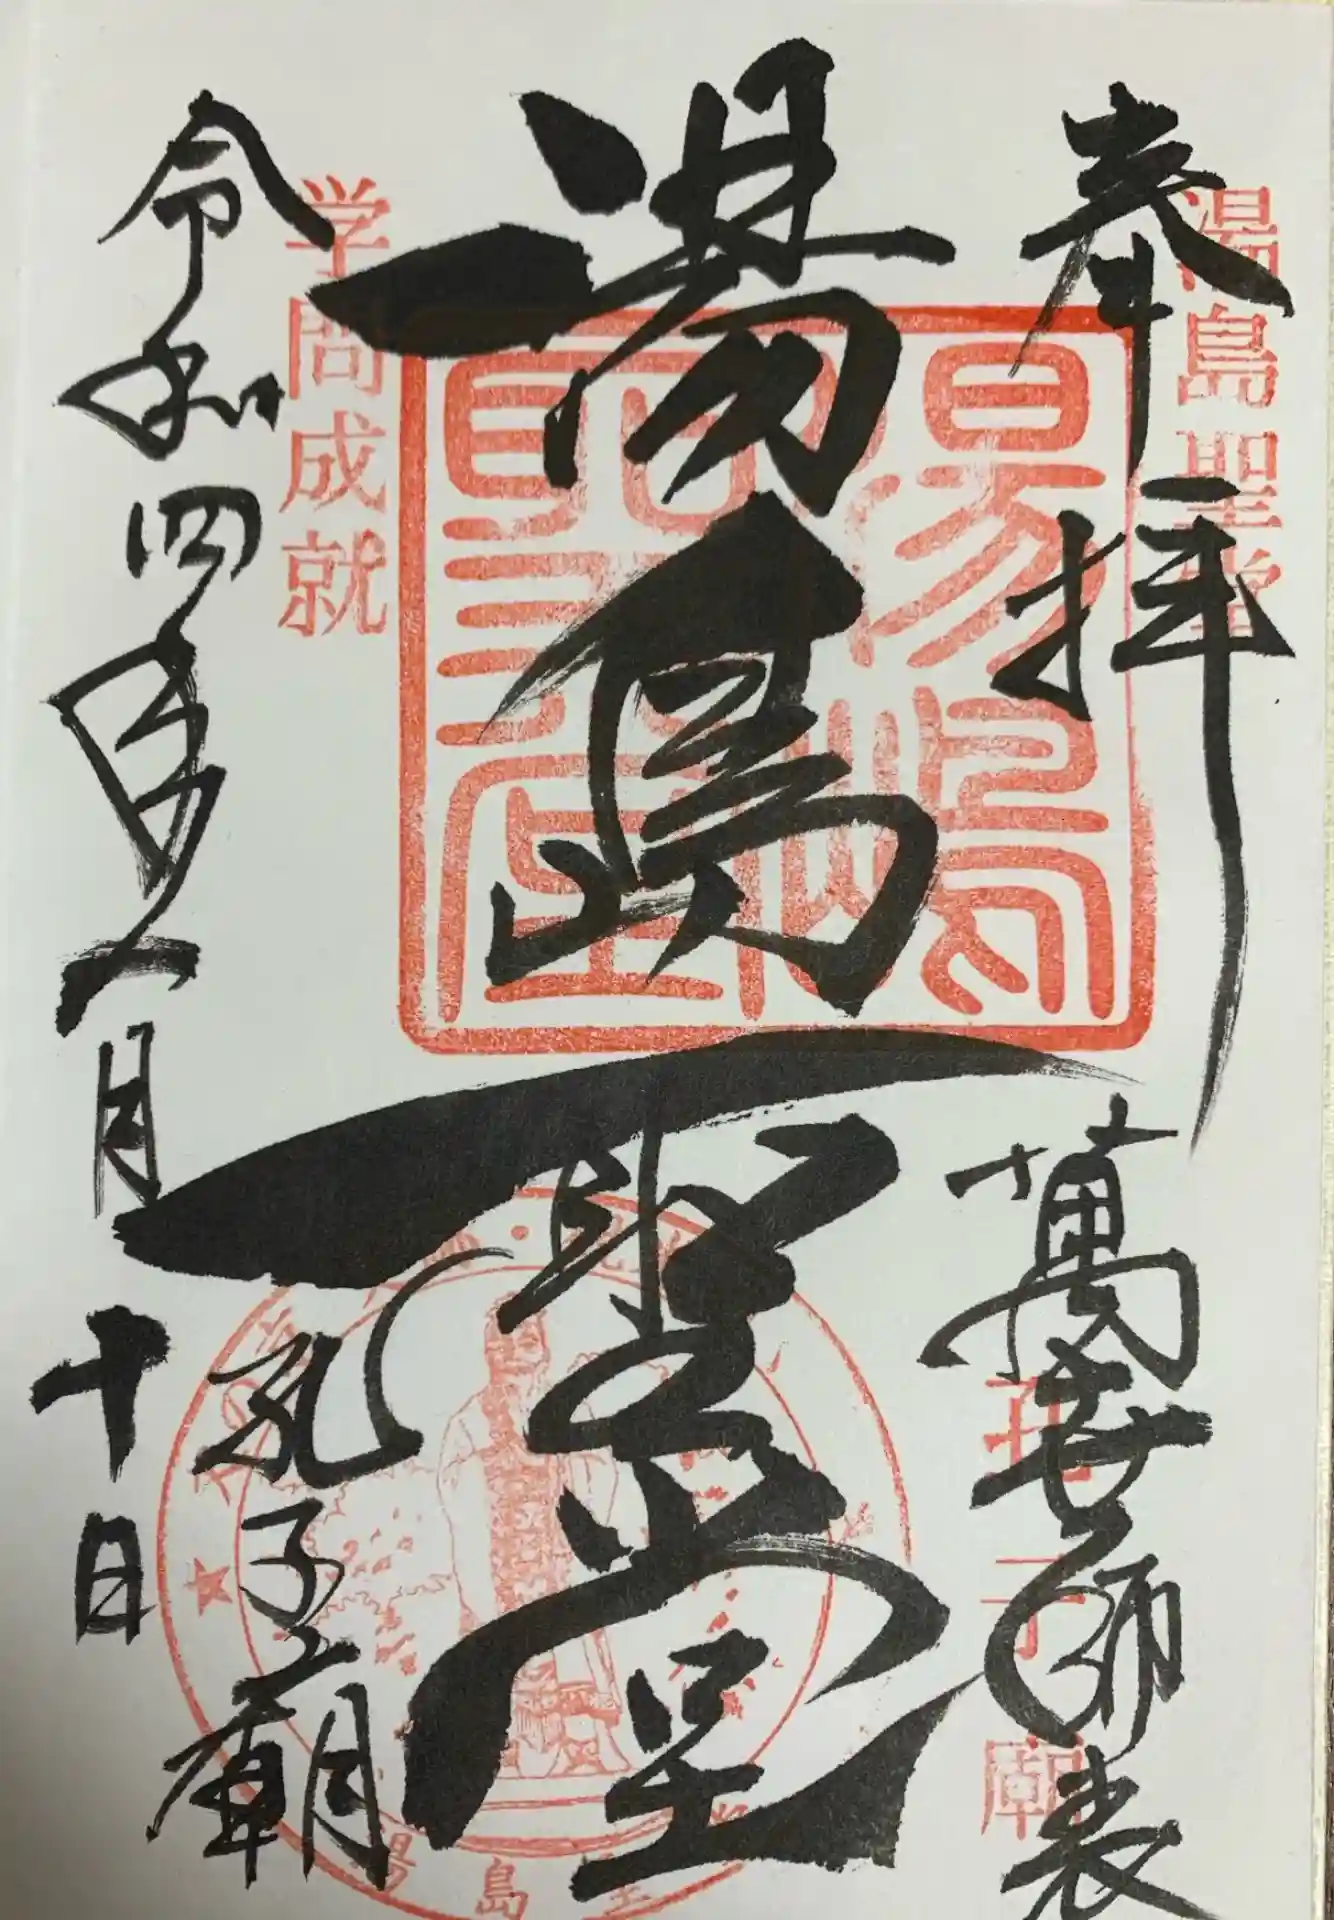 湯島聖堂
奉拝
萬世師表
孔子廟
湯島聖堂
湯島聖堂
学問成就
孔子廟
令和四年一月十日
湯島聖